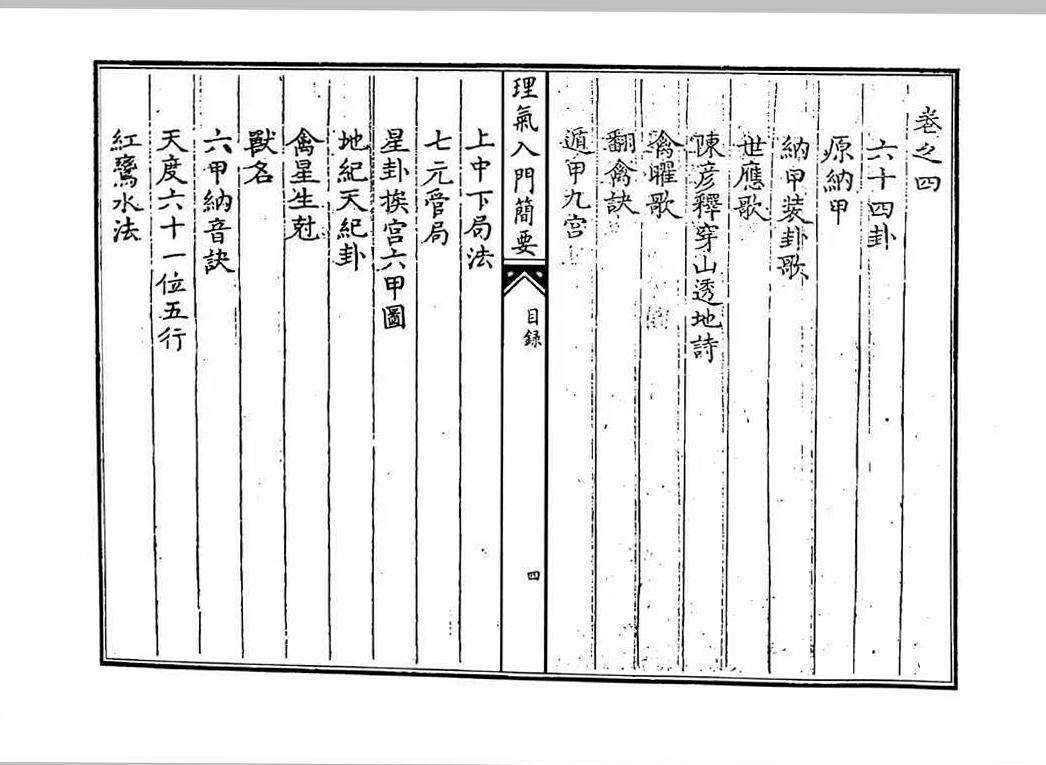 卷之四
六十四卦
原納甲
納甲装卦歌
世應歌
陳彦釋穿山透地詩
禽曜歌
翻禽訣
遁甲九宫
理氣入門簡要
目録
四
上中下局法
七元管局
星卦挨宫六甲圖
地紀天紀卦
禽星生尅
獸名
六甲納音訣
天度六十一位五行
紅鸞水法